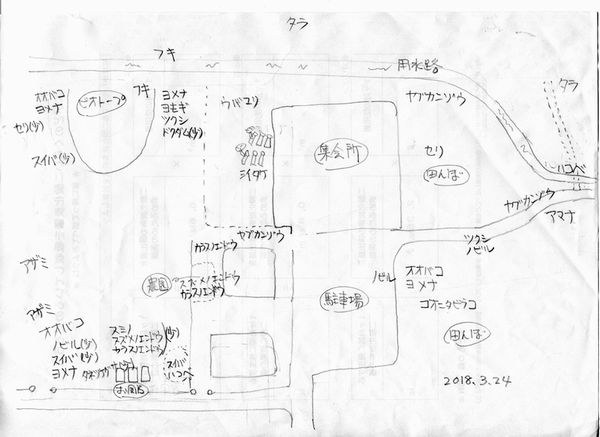 タラ
フキ
用水路
オオバコ
ヨメナ
セリ(少)
スイバ(少)
ビオトープ
フキ
ヨメナ
ヨモギ
ツクシ
ドクダム(少)
ウバユリ
シイタケ
集会所
ヤブカンゾウ
セリ
田んぼ
タラ
ハコベ
ヤブカンゾウ
アマナ
ツクシ
ノビル
ヤブカンゾウ
カラスノエンドウ
スズメノエンドウ
カラスノエンドウ
農園
駐車場
ノビル
オオバコ
ヨメナ
コオニタビラコ
田んぼ
アザミ
アザミ
オオバコ
ノビル(少)
スイバ(少)
ヨメナ
スミレ
スズメノエンドウ(少)
カラスノエンドウ
スイバ
ハコベ
2018.3.24